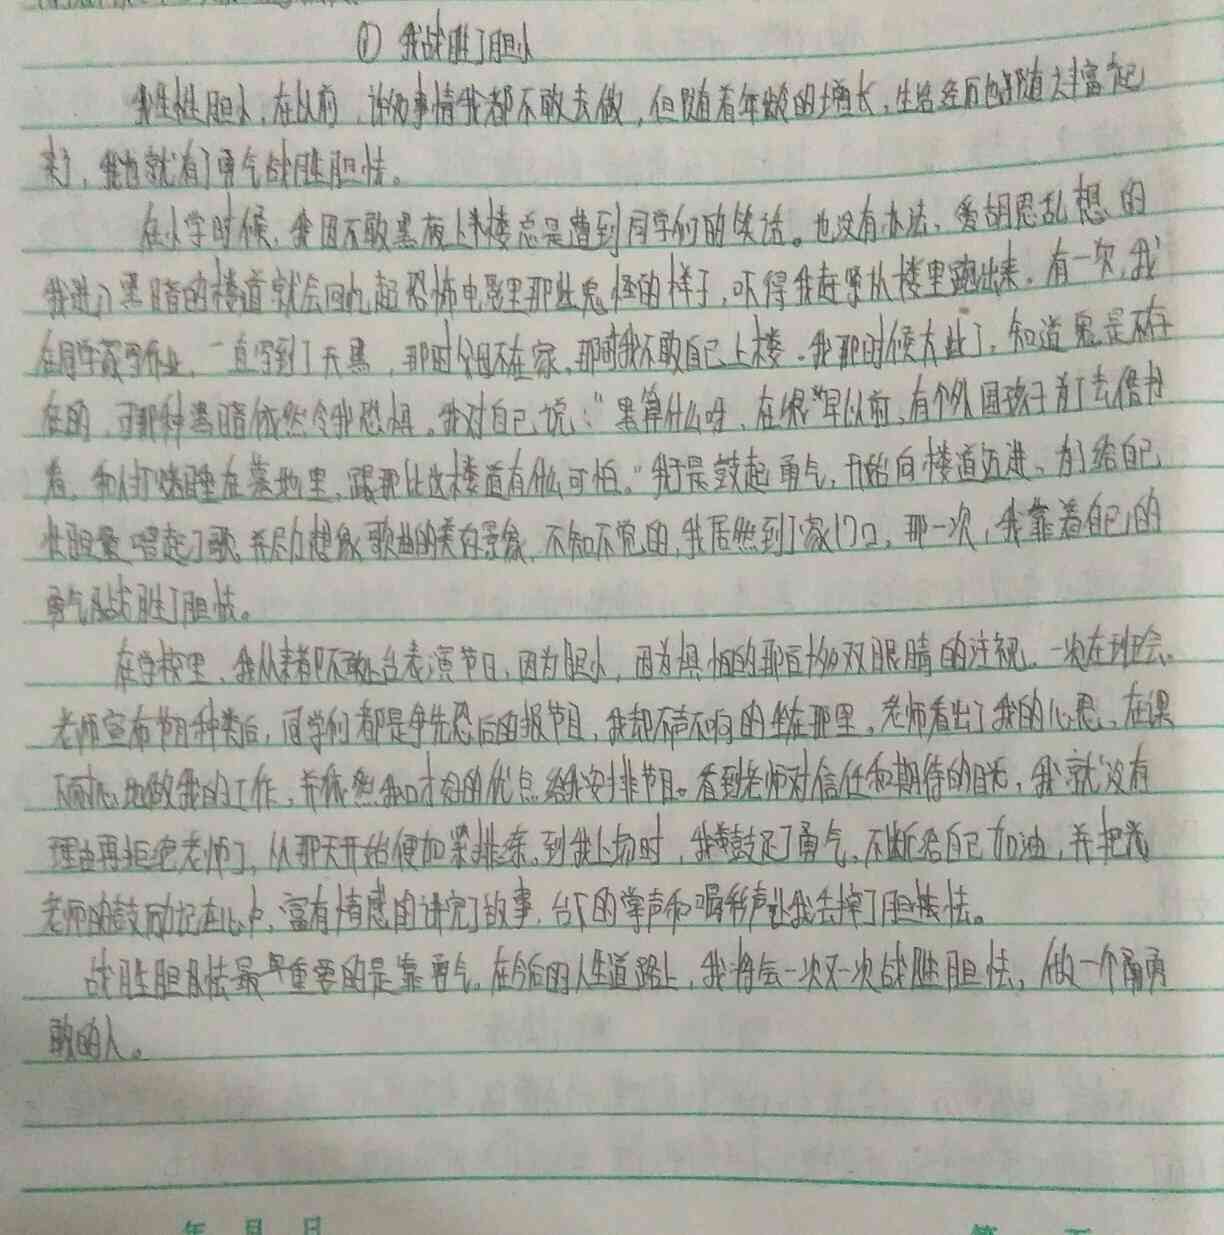 ① 我战胜了胆小
我生性胆小,在以前,许多事情我都不敢去做,但随着年龄的增长,生活经历也随之丰富起
来了,我也就有了勇气战胜胆怯。
在小学时候,我因不敢黑夜上楼总是遭到同学们的笑话。也没有办法,爱胡思乱想的
我进入黑暗的楼道就会回忆起恐怖电影里那些鬼怪的样子,吓得我赶紧从楼里跑出来。有一次,我
在同学家写作业,一直写到了天黑,那时父母不在家,那时我不敢自己上楼。我那时候大些了,知道鬼是不存
在的,可那种黑暗依然令我恐惧。我对自己说:“黑算什么呀,在很早以前,有个外国孩子为了去借书
看,和人打赌睡在墓地里,跟那比这楼道有什么可怕。”我于是鼓起勇气,开始向楼道迈进,为了给自己
壮胆量唱起了歌,并尽力想象歌曲的美好景象,不知不觉的,我居然到了家门口。那一次,我靠着自己的
勇气战胜了胆怯。
在学校里,我从来都不敢上台表演节目,因为胆小,因为惧怕的那百十多双眼睛的注视。一次在班会,
老师宣布节目种类后,同学们都是争先恐后的报节目,我却不声不响的坐在那里。老师看出了我的心思,在课
下耐心地做我的工作,并依然我口才好的优点给我安排节目。看到老师对信任和期待的目光,我就没有
理由再拒绝老师了,从那天开始便加紧排练。到我上场时,我鼓足了勇气,不断给自己加油,并把
老师的鼓励记在心中,富有情感的讲完了故事,台下的掌声和喝彩声让我丢掉了胆怯。
战胜胆怯最重要的是靠勇气。在今后的人生道路上,我将会一次又一次战胜胆怯,做一个勇
敢的人。
年 月 日
第 页